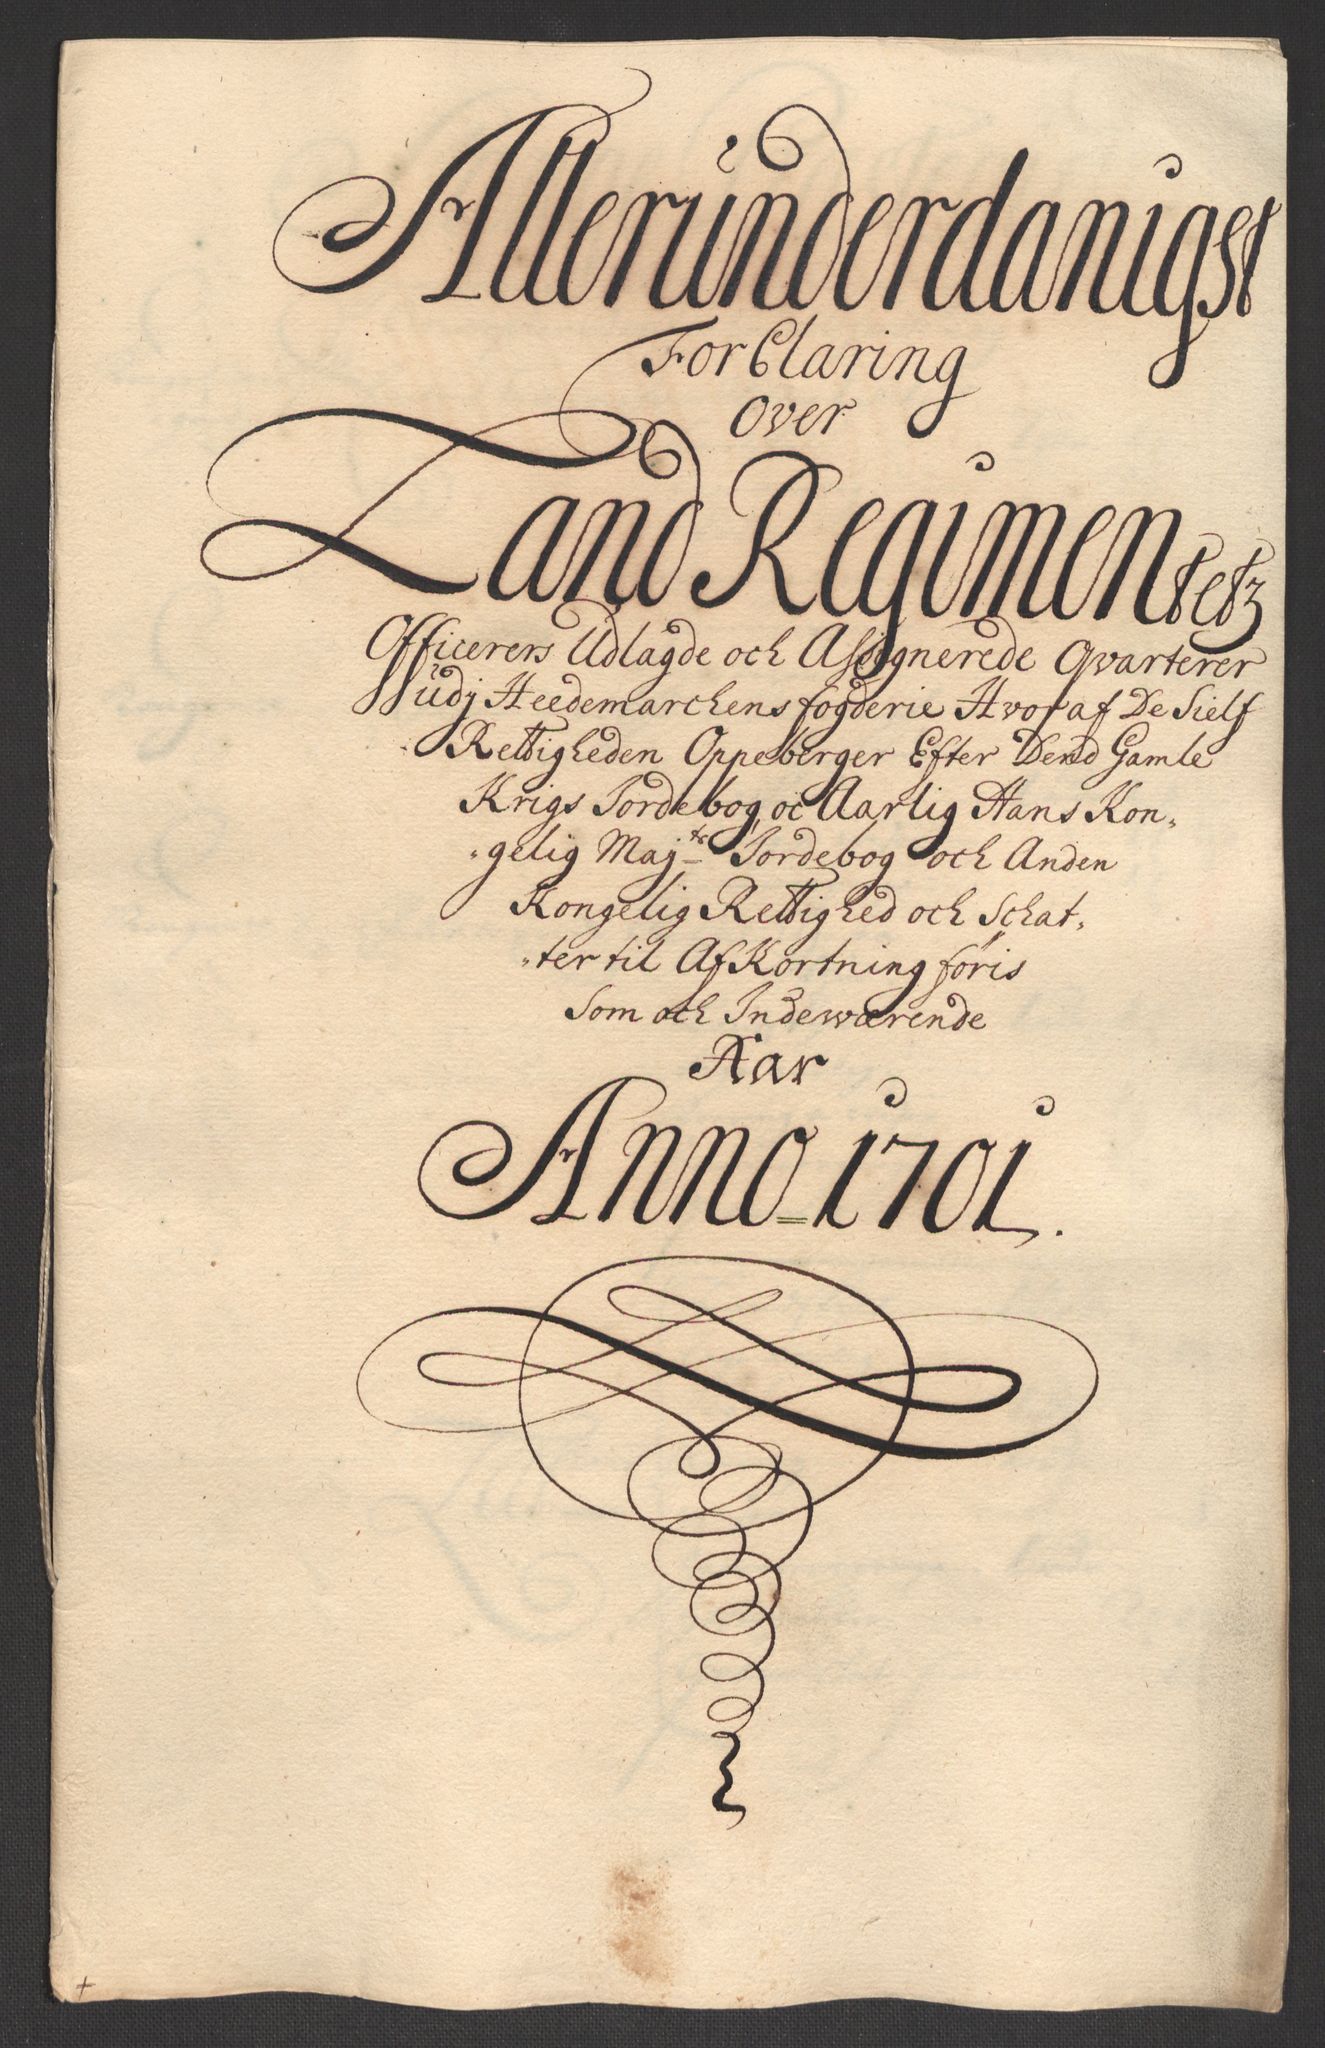 Allerúnderdanigst
Forklaring
Over
Land Regimentetz
Officerers Udlagde och Assignerede Qvarterer
udj Heedemarchens fogderie Hvoraf De Sielf
Rettigheden Oppeberger Efter Dend Gamle
Krigs Jordebog, oc Aarlig Hans Kon„
„gelig Majts Jordebog och Anden
Kongelig Rettighed och Schat„
„ter til Af Kortning føris
Som och Indewærende
Aar
Anno 1701.